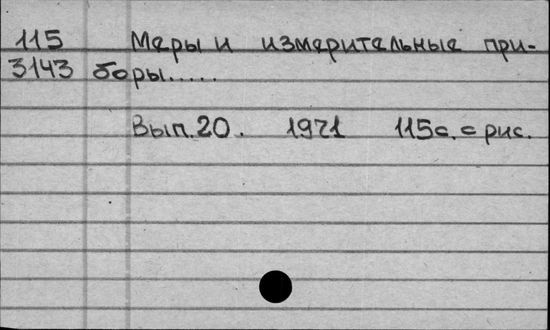 115 Меры и измерительные при-
3143 боры.....
Вып. 20. 1971 115с. с рис.